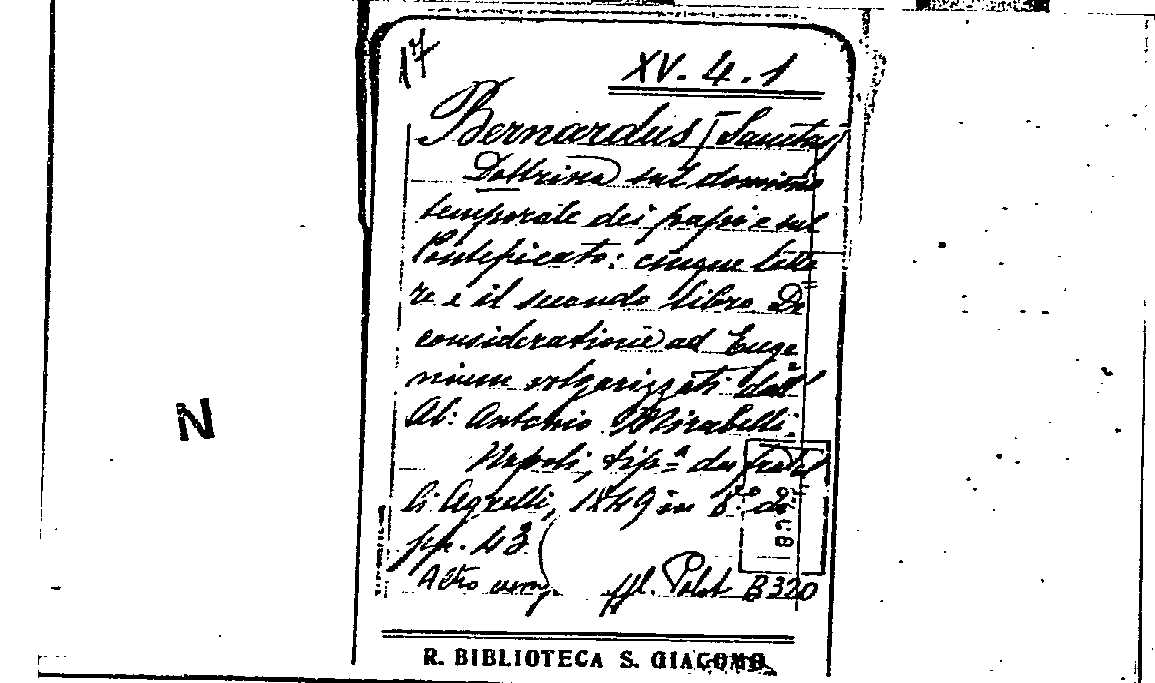 17
XV. 4. 1
Bernardus [Sanctus]
Dottrina sul dominio
temporale dei papi e sul
Pontificato: cinque lette
re e il secondo libro De
consideratione ad Euge
nium volgarizzati dall'
Ab: Antonio Mirabelli.
Napoli, tip.ª dei fratel
li Agrelli, 1849 in 8.° di
pp. 43
Altro esemp. Polit B 320
N
R. BIBLIOTECA S. GIACOMO